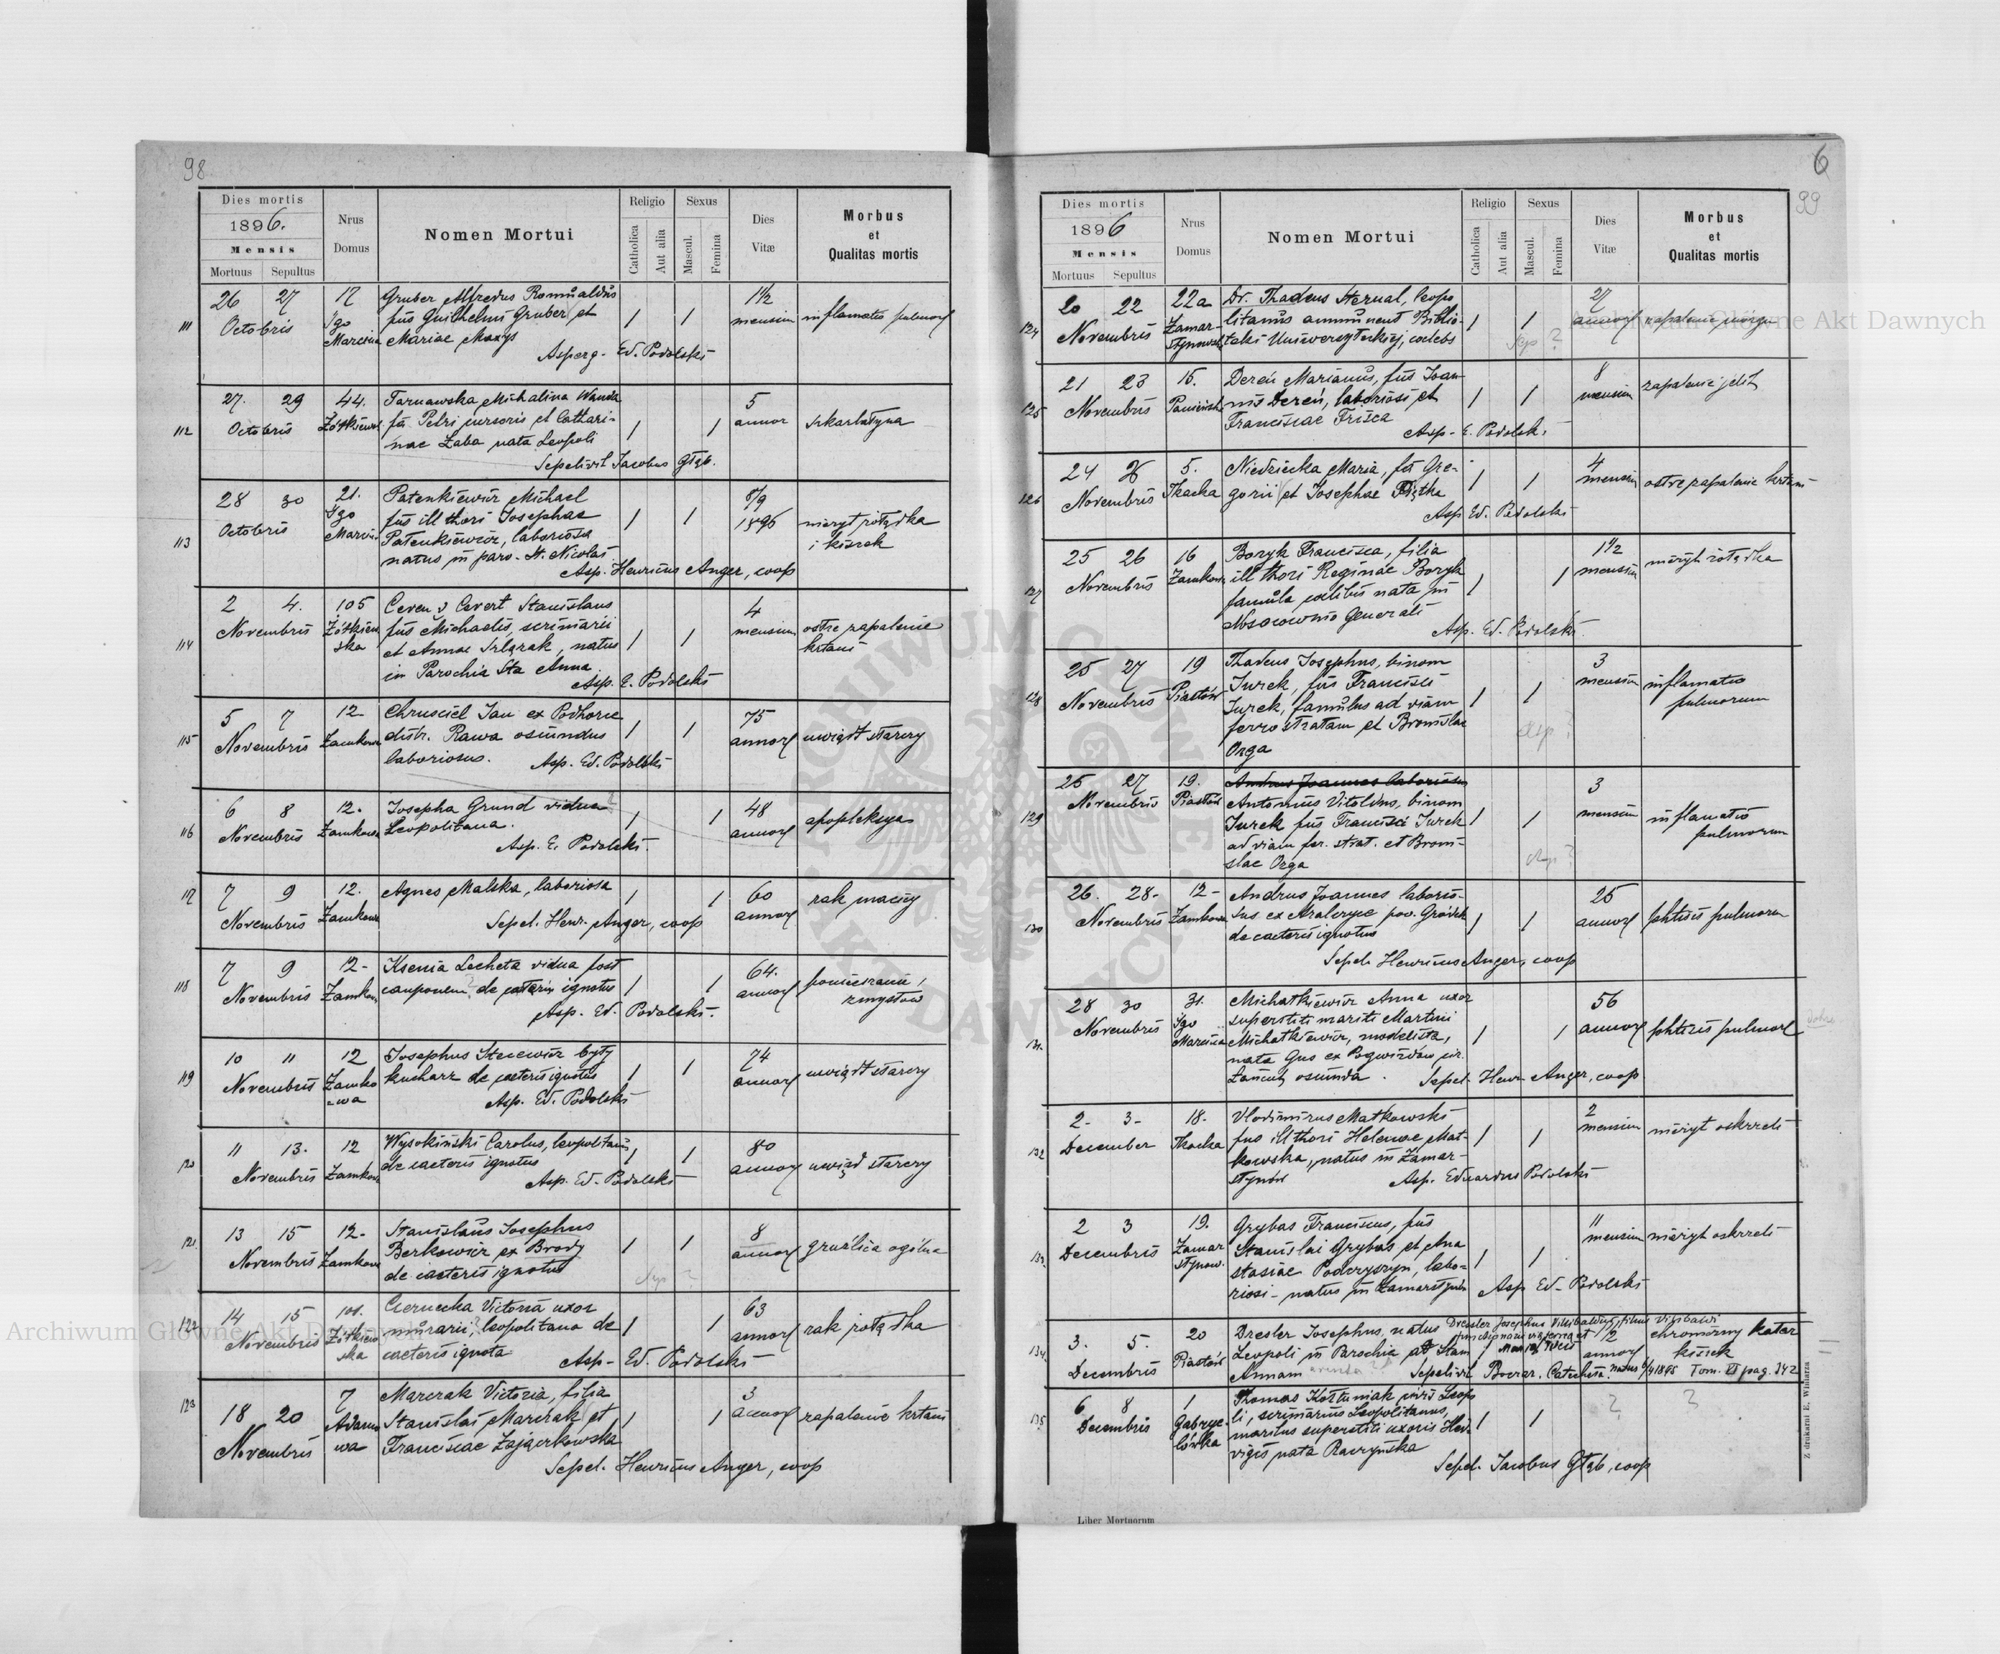 98
Dies mortis
1896.
Mensis
Mortuus Sepultus
Nrus Domus
Nomen Mortui
Religio
Catholica
Aut alia
Sexus
Mascul.
Femina
Dies Vitæ
Morbus et Qualitas mortis
111
26 27
Octobris
17
Sgo Marcina
Gruber Alfredus Romualdus
fius Guilhelmi Gruber et
Mariae
Asperg. Ed. Podolski
1 1
1 1/2
mensium
inflamatio pulmon
112
27. 29
Octobris
44.
Żółkiews
Tarnawska Michalina Wanda
fa Petri cursoris et Cathari-
nae Żaba nata Leopoli
Sepelivit Jacobus Głąb.
1 1
5
annor
szkarlatyna
113
28 30
Octobris
21.
Sgo
Marcin
Patenkiewicz Michael
fius ill thori Josephae
Patenkiewicz, laboriosa
natus in paro. St. Nicolai
Asp. Henricus Anger, coop
1 1
8/9
1896
nieżyt żołądka
i kiszek
114
2 4.
Novembris
105
Żółkiew
ska
Ceven v Cevert Stanislaus
fius Michaelis, scriniarii
et Annae, natus
in Parochia Sta Anna
Asp. E. Podolski
1 1
4
mensium
ostre zapalenie
krtani
115
5 7
Novembris
12
Zamkowa
Chrusciel Jan ex Podhorce
distr. Rawa osiundus
laboriosus.
Asp. Ed. Podolski
1 1
75
annor
uwiąd starczy
116
6 8
Novembris
12.
Zamkowa
Josepha Grund vidua
Leopolitana.
Asp. E. Podolski.
1 1
48
annor
apopleksya
117
7 9
Novembris
12.
Zamkowa
Agnes Malska, laboriosa
Sepel. Henr. Anger, coop
1 1
60
annor
rak macicy
118
7 9
Novembris
12-
Zamkow
Ksenia Lecheta vidua post
cauponem, de caeteris ignotus
Asp. Ed. Podolski.
1 1
64.
annor
pomieszanie
zmysłów
119
10 11
Novembris
12
Zamko
-wa
Josephus Stecewicz były
kucharz de caeteris ignotus
Asp. Ed. Podolski
1 1
74
annor
uwiąd starczy
120
11 13.
Novembris
12
Zamkow
Wysokiński Carolus, leopolitan
de caeteris ignotus
Asp. Ed. Podolski
1 1
80
annor
uwiąd starczy
121.
13 15
Novembris
12-
Zamkowa
Stanislaus Josephus
Berkowicz ex Brody
de caeteris ignotus
1 1
8
annor
gruźlica ogólna
122
14 15
Novembris
101.
Żółkiew
ska
Czernecka Victoria uxor
murarii, leopolitana de
caeteris ignota
Asp- Ed. Podolski
1 1
63
annor
rak żołądka
123
18 20
Novembris
7
Adamo
wa
Marczak Victoria, filia
Stanislai Marczak et
Franciscae Zajączkowska
Sepel. Henricus Anger, coop
1 1
3
annor
zapalenie krtani
6
99
Dies mortis
1896
Mensis
Mortuus Sepultus
Nrus Domus
Nomen Mortui
Religio
Catholica
Aut alia
Sexus
Mascul.
Femina
Dies Vitæ
Morbus et Qualitas mortis
124
20 22
Novembris
22a
Zamar-
stynowsk
Dr. Thadeus Sternal, leopo
litanus ammunent Biblio-
teki Uniwersyteckiej, caelebs
1 1
27
annor
zapalenie mózgu
125
21 23
Novembris
15.
Panieńsk
Dereń Marianus, fius Joan
nis Dereń, laboriosi et
Franciscae Frisca
Asp- E. Podolski
1 1
8
mensium
zapalenie jelit
126
24 26
Novembris
5.
Tkacka
Niedziecka Maria, fa Gre-
gorii et Josephae Piątka
Asp Ed. Podolski
1 1
4
mensium
ostre zapalenie krtani
127
25 26
Novembris
16
Zamkow
Boryk Francisca, filia
ill thori Reginae Boryk
famula caelibis nata in
Nosocomio Generali
Asp. Ed. Podolski.
1 1
1 1/2
mensium
nieżyt żołądka
128
25 27
Novembris
19
Piastów
Thadeus Josephus, binom
Jurek, fius Francisci
Jurek, famulus ad viam
ferro stratam et Bronislae
Orga
1 1
3
mensium
inflamatio
pulmonum
129
25 27
Novembris
19.
Piastów
Andrus Joannes laboriosus
Antonius Vitoldus, binom
Jurek fius Francisci Jurek
ad viam fer. strat. et Broni-
slae Orga
1 1
3
mensium
inflamatio
pulmonum
130
26. 28-
Novembris
12-
Zamkowa
Andrus Joannes laborio-
sus ex pow. Gródek
de caeteris ignotus
Sepel. Henricus Anger, coop
1 1
25
annor
phtisis pulmon
131.
28 30
Novembris
31.
Sgo
Marcina
Michałkiewicz Anna uxor
superstiti mariti Martini
Michałkiewicz, modelista,
nata Gus ex Pogwizdów cir.
Łańcut osiunda.
Sepel. Henr Anger, coop
1 1
56
annor
phtisis pulmon
132
2- 3-
December
18-
Tkacka
Vlodimirus Małkowski
fius ill thori Helenae Mał-
kowska, natus in Zamar-
stynów
Asp. Eduardus Podolski
1 1
2
mensium
nieżyt oskrzeli
133.
2 3
Decembris
19.
Zamar
stynow.
Grybas Franciscus, fius
Stanislai Grybas et Ana
stasiae Podczyszyn, labo-
riosi - natus in Zamarstynów
Asp Ed- Podolski
1 1
11
mensium
nieżyt oskrzeli
134
3. 5.
Decembris
20
Piastów
Dresler Josephus, natus
Leopoli in Parochia ad Stam
Annam
Dressler Josephus Vilibaldus, filius Vilibaldi
Sepelivit Boczar. Catecheta.
2
annor
chroniczny katar
kiszek
Tom. VI pag. 342
135
6 8
Decembris
1
Gabrye-
lówka
Thomas Kostuniak civis Leopo
li, scriniarius Leopolitanus,
maritus superstiti uxoris Hed
vigis nata Raczyńska
Sepel. Jacobus Głąb, coop
1 1
? ?
Z drukarni E. Winiarza
Liber Mortuorum
Archiwum Główne Akt Dawnych
Archiwum Główne Akt Dawnych
ARCHIWUM GŁÓWNE AKT DAWNYCH